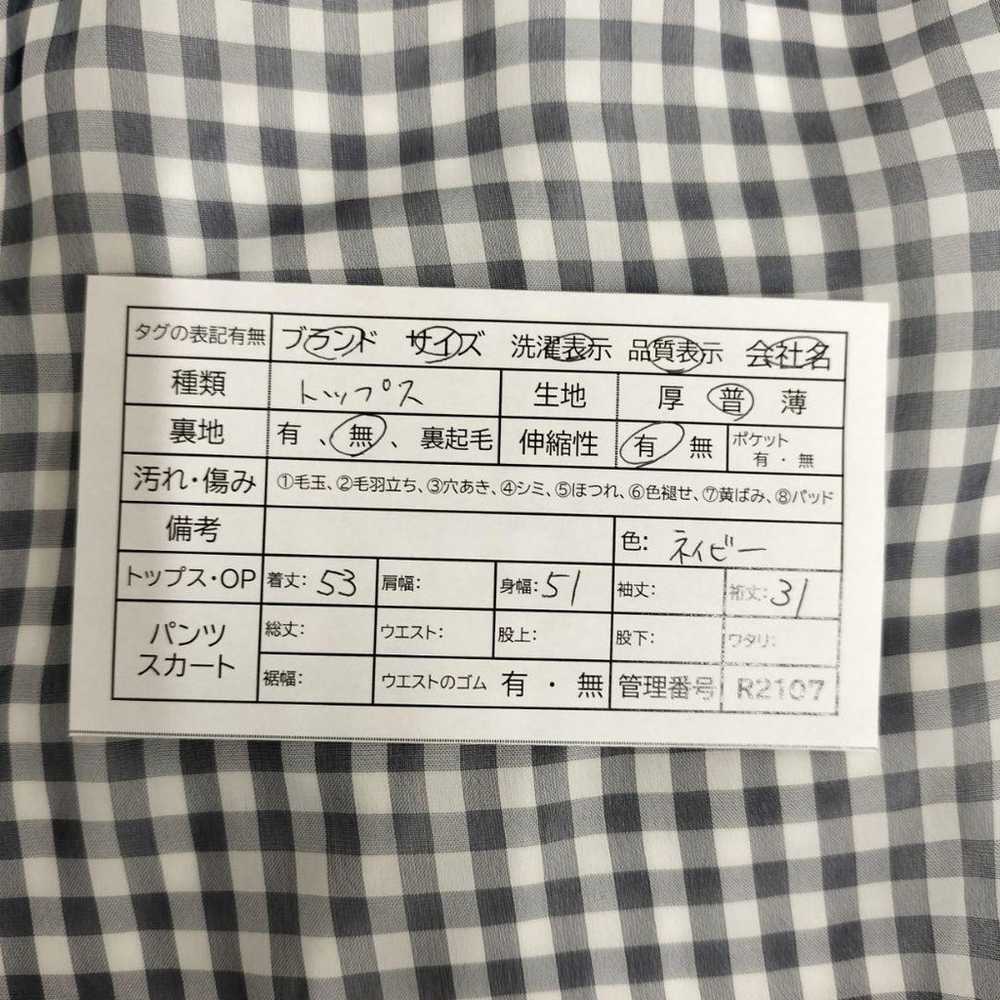 タグの表記有無 ブランド サイズ 洗濯表示 品質表示 会社名
種類 トップス 生地 厚 普 薄
裏地 有、無、裏起毛 伸縮性 有 無 ポケット
有・無
汚れ・傷み ①毛玉、②毛羽立ち、③穴あき、④シミ、⑤ほつれ、⑥色褪せ、⑦黄ばみ、⑧パッド
備考 色: ネイビー
トップス・OP 着丈: 53 肩幅: 身幅: 51 袖丈: 裄丈: 31
パンツ 総丈: ウエスト: 股上: 股下: ワタリ:
スカート 裾幅: ウエストのゴム 有・無 管理番号 R2107